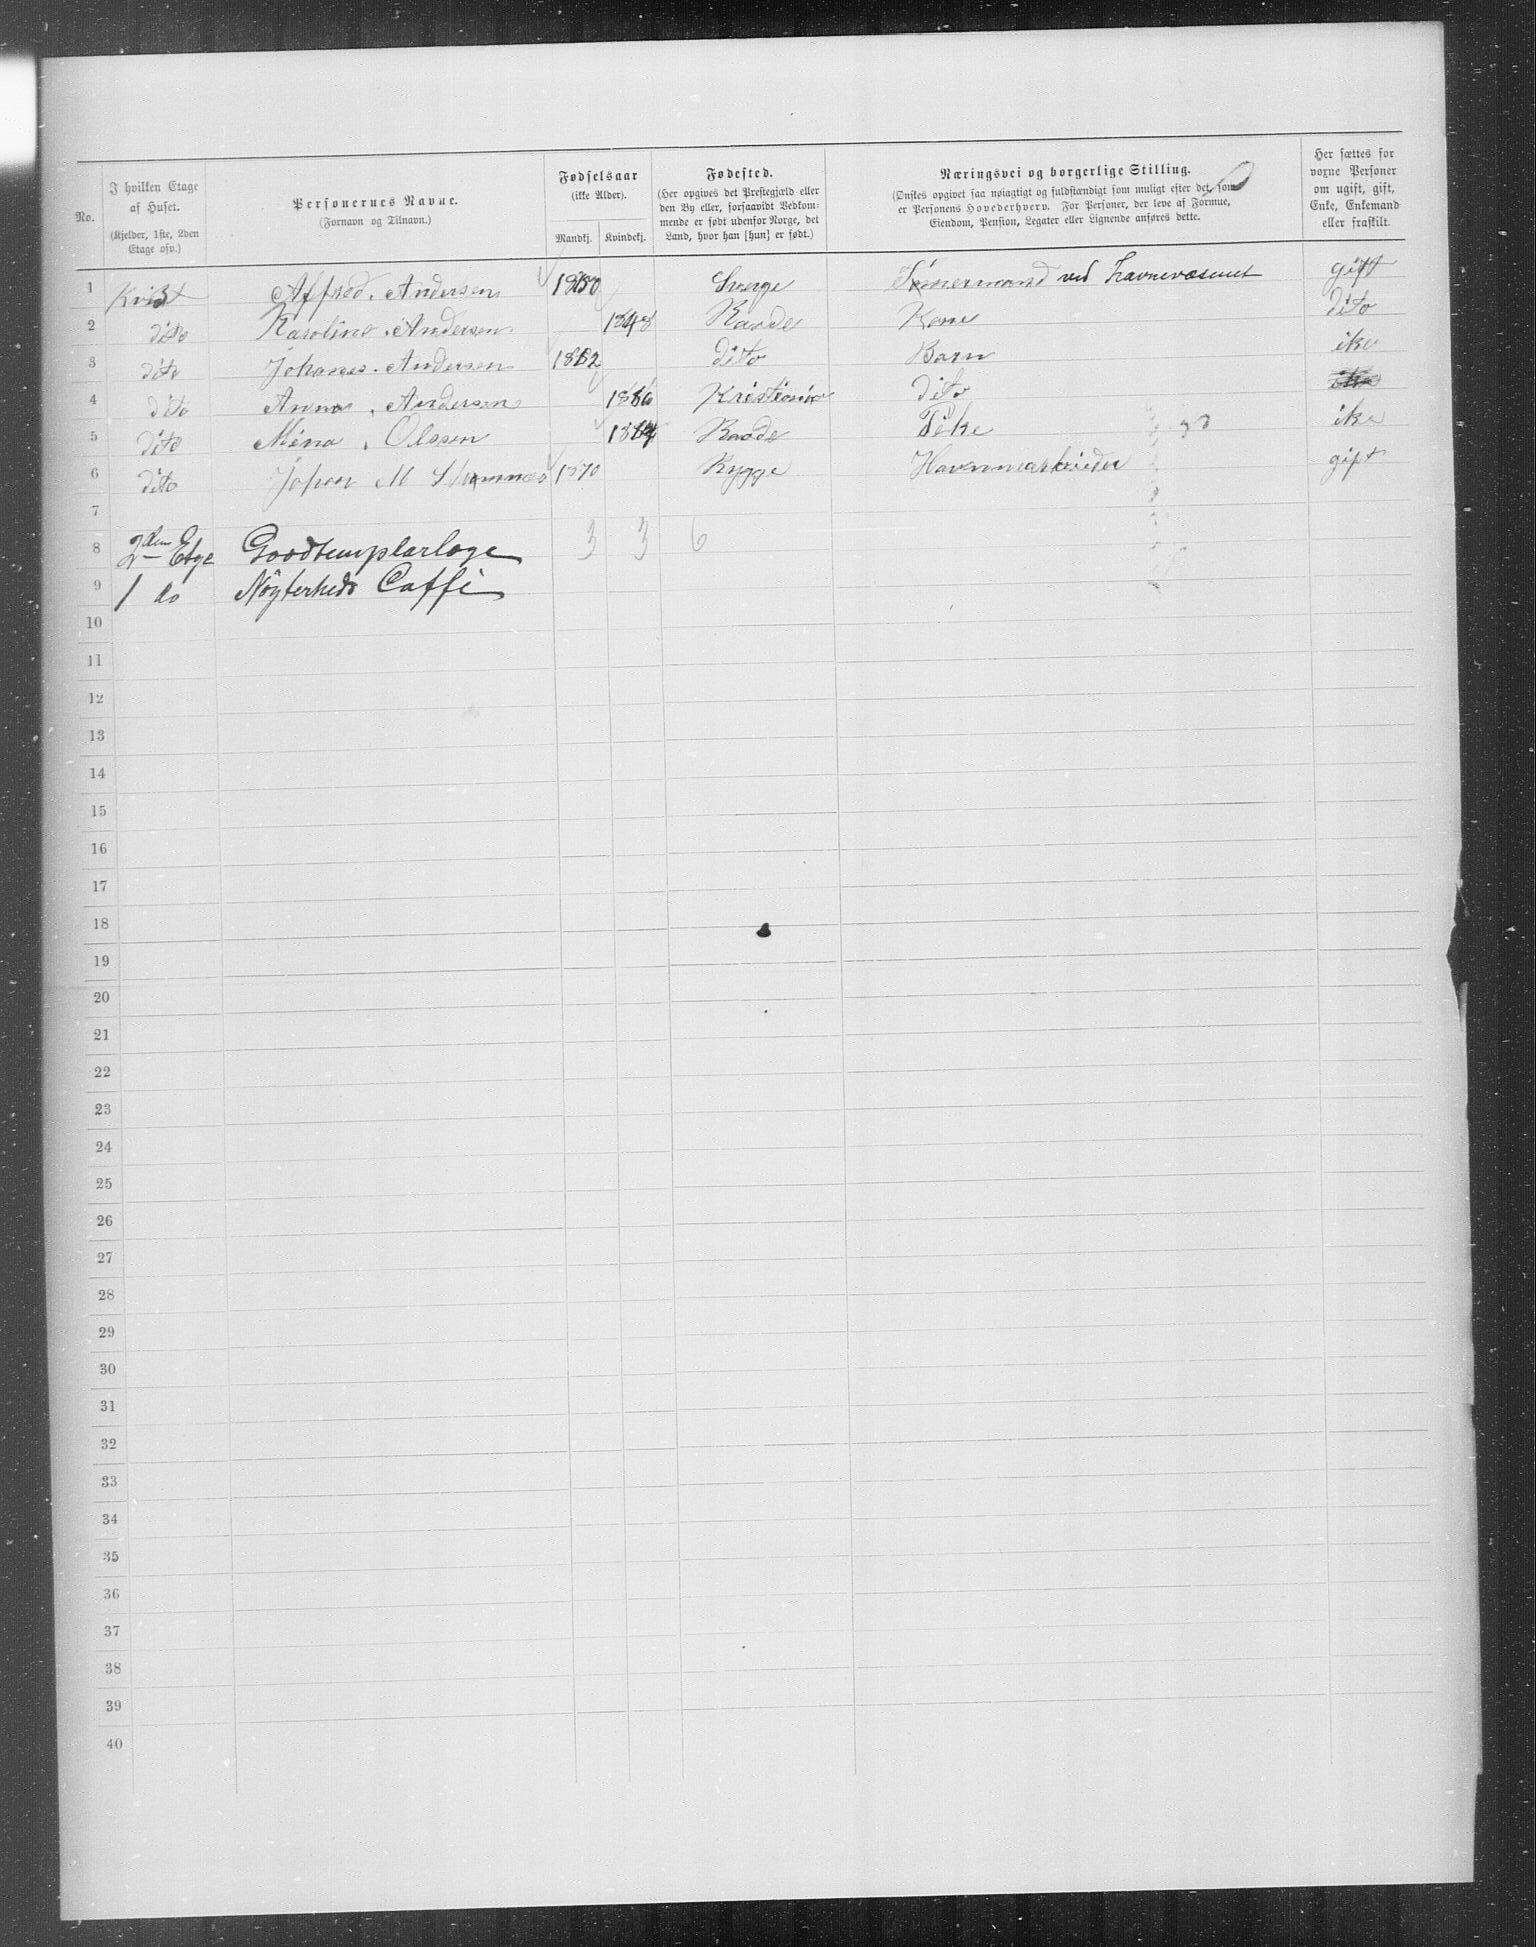 No.
I hvilken Etage af Huset. (Kjelder, 1ste, 2den Etage osv.)
Personernes Navne. (Fornavn og Tilnavn.)
Fødselsaar (ikke Alder). Mandkj. Kvindekj.
Fødested. (Her opgives det Prestegjæld eller den By eller, forsaavidt Vedkommende er født udenfor Norge, det Land, hvor han [hun] er født.)
Næringsvei og borgerlige Stilling. (Ønskes opgivet saa nøiagtigt og fuldstændigt som muligt efter det, som er Personens Hovederhverv. For Personer, der leve af Formue, Eiendom, Pension, Legater eller Lignende anføres dette.
Her sættes for voxne Personer om ugift, gift, Enke, Enkemand eller fraskilt.
1 Kvist Alfred. Andersen 1850 Sverge Tømermand ved Havnevæsenet gift
2 dito Karoline. Andersen 1848 Raade Kone dito
3 dito Johanes. Andersen 1882 dito Barn ike
4 dito Anna. Andersen 1886 Kristiania dito
5 dito Mina. Olssen Raade Pike ike
6 dito Johan M 1870 Rygge Havnearbeider gift
7
8 2den Etge Goodtemplarloge 3 3 6
9 1 do Nøgterheds Caffé
10
11
12
13
14
15
16
17
18
19
20
21
22
23
24
25
26
27
28
29
30
31
32
33
34
35
36
37
38
39
40